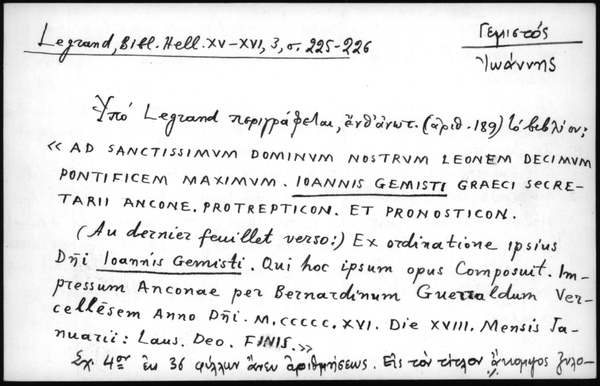 Legrand, Bibl. Hell. XV-XVI, 3, σ. 225-226
Γεμιστός
Ἰωάννης
Ὑπό Legrand περιγράφεται, ἔνθ' ἀνωτ. (ἀριθ. 189) τό βιβλίον:
« AD SANCTISSIMVM DOMINVM NOSTRVM LEONEM DECIMVM
PONTIFICEM MAXIMVM. IOANNIS GEMISTI GRAECI SECRE-
TARII ANCONE. PROTREPTICON. ET PRONOSTICON.
(Au dernier feuillet verso:) Ex ordinatione ipsius
Dñi Ioannis Gemisti. Qui hoc ipsum opus Composuit. Im-
pressum Anconae per Bernardinum Guerraldum Ver-
cellēsem Anno Dñi. M.CCCCC.XVI. Die XVIII. Mensis Ja-
nuarii: Laus. Deo. FINIS.»
Σχ. 4ον ἐκ 36 φύλλων ἄνευ ἀριθμήσεως. Εἰς τόν τίτλον ἄκομψος ξυλο-